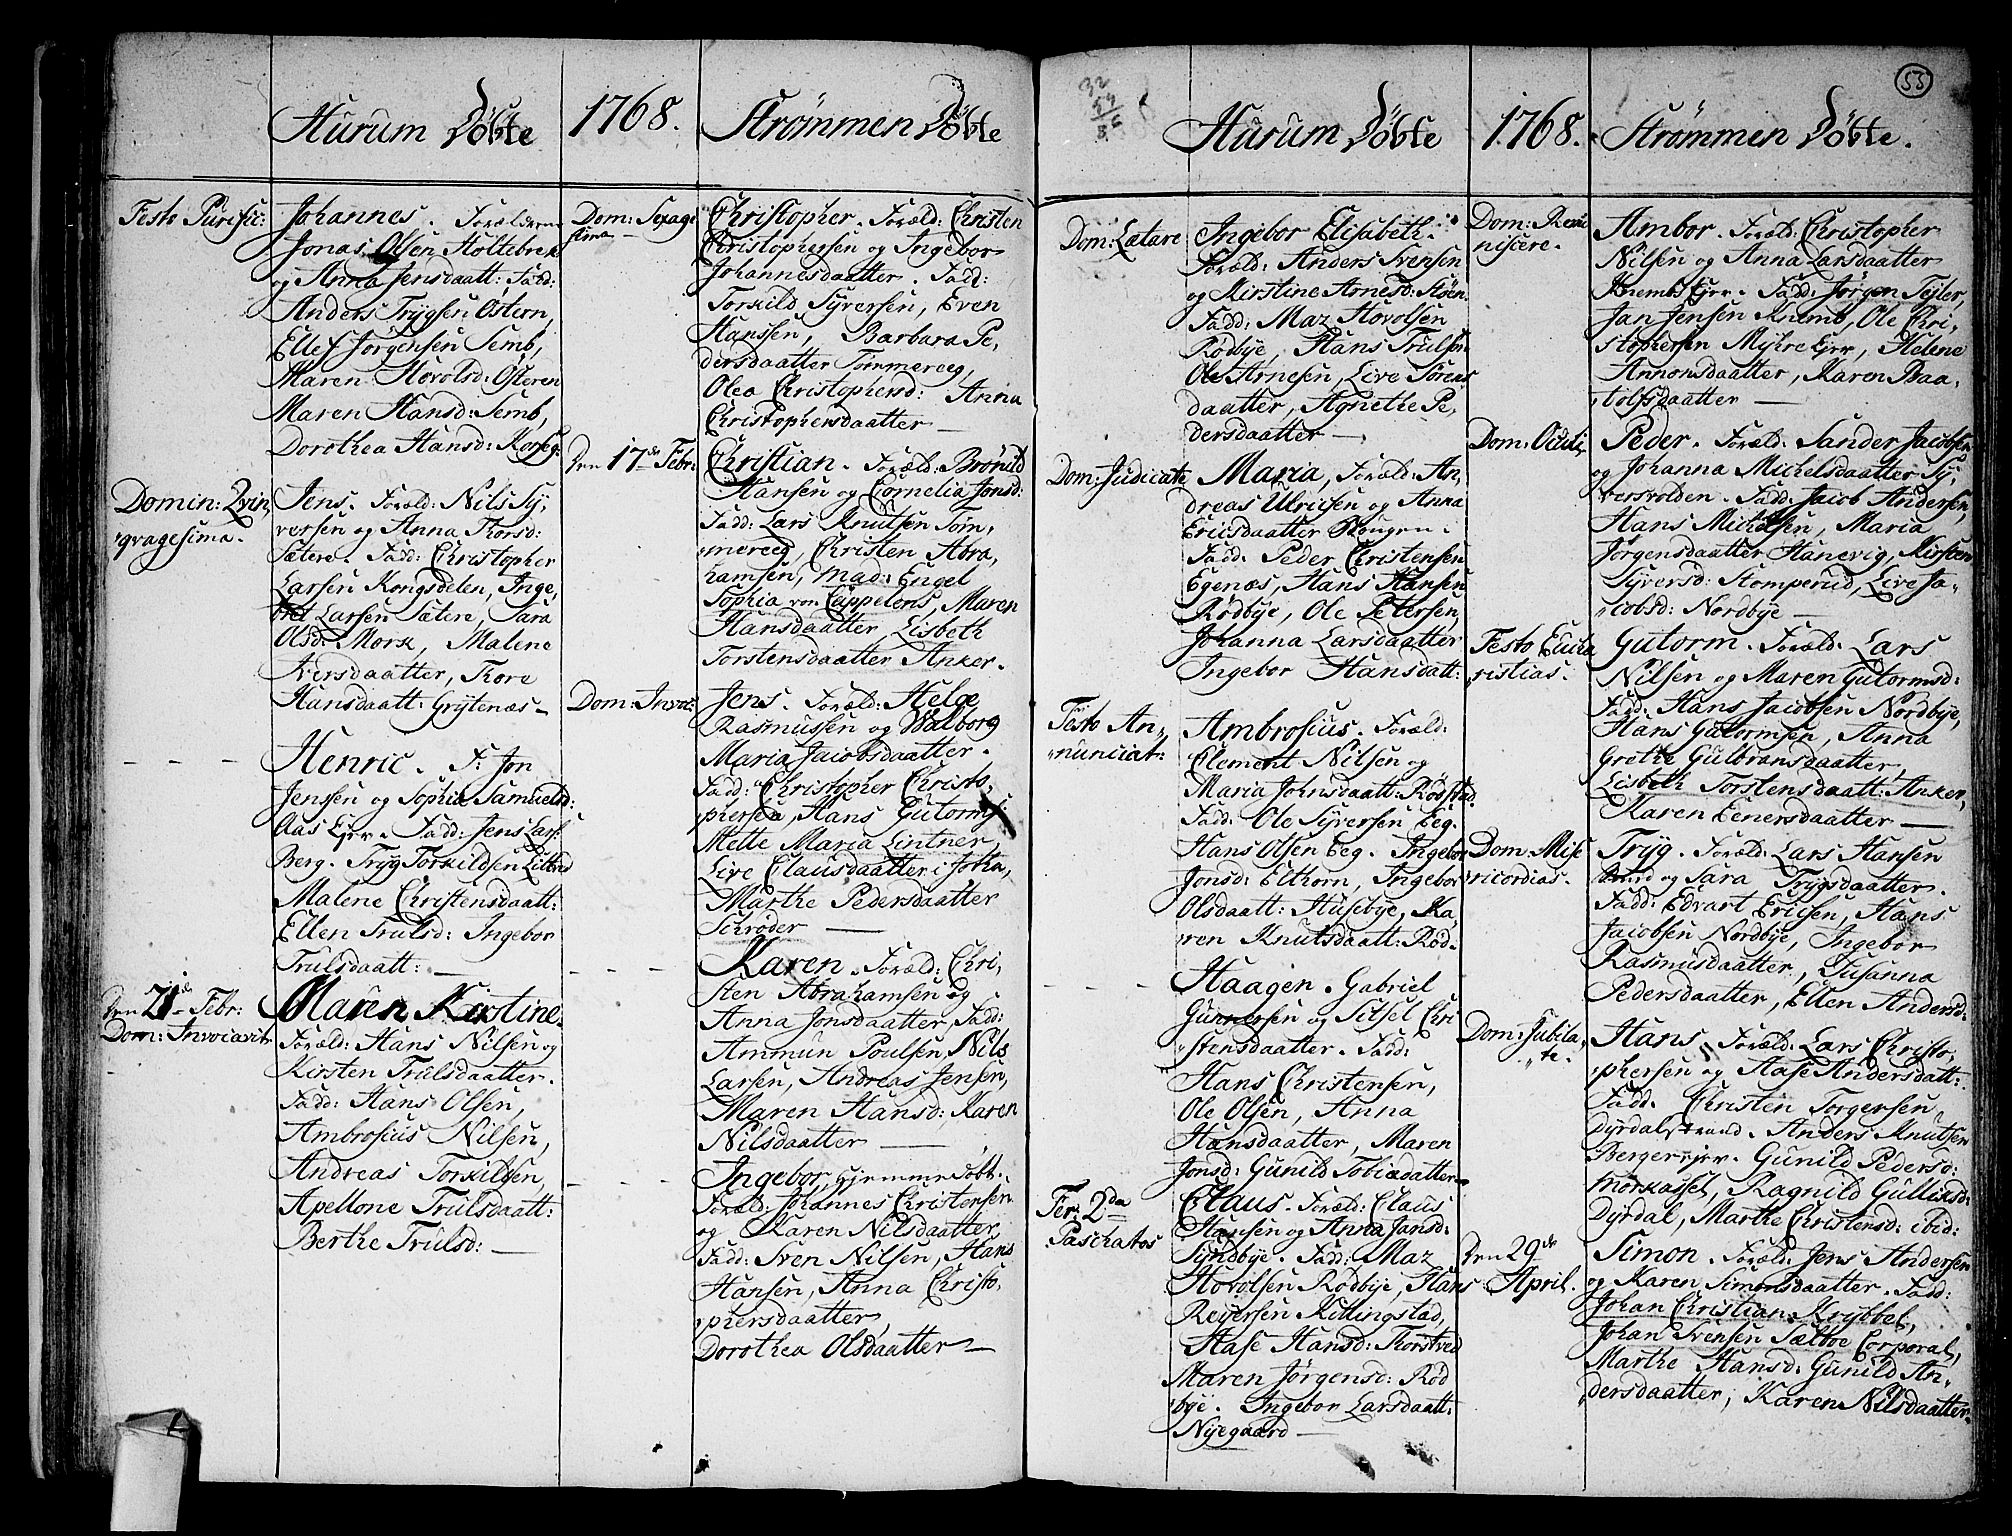 Hurum Döbte
1768.
Strømmen Döbte
Festo Purific:
Johannes. Forældrene
Jonas Olsen Holtebrek
og Anna Jensdaatt: Fadd:
Anders Trygsen Ostern,
Ellef Jørgensen Semb,
Maren Hovolsd: Østeren
Maren Hansd: Semb,
Dorothea Hansd: Korseg.
Domin: Qvin,
qvagesima.
Jens. Foræld: Nils Sy,
versen og Anna Thorsd:
Sætere. Fadd: Christopher
Larsen Kongsdelen, Inge,
bret Larsen Sætere, Sara
Olsd: Mork, Malene
Iversdaatter, Thore
Hansdaatt: Grytenæs
Henric. F: Jon
Jenssen og Sophia Samuelsd:
Aas Ejer. Fadd: Jens Lars:
Berg. Tryg Torkildsen
Malene Christensdaatt:
Ellen Trulsd: Ingebor
Trulsdaatt:
Den 21de Febr:
Dom: Invocavit
Maren Kirstine.
Foræld: Hans Nilsen og
Kirsten Trulsdaatter.
Fadd: Hans Olsen,
Ambrosius Nilsen,
Andreas Torkilsen,
Apellone Trulsdaatt:
Berthe Trulsd:
Dom: Sexage
sima
Christopher. Foræld: Christen
Christophersen og Ingebor
Johannesdaatter. Fadd:
Torkild Syversen, Even
Hanssen, Barbara Pe,
dersdaatter Tømmereeg,
Olea Christophersd: Anna
Christophersdaatter
Den 17de Febr:
Christian. Foræld: Brønild
Hansen og Cornelia Jonsd:
Fadd: Lars Knutsen Tøm,
mereeg, Christen Abra,
hamsen, Mad: Engel
Sophia von Cappelens, Maren
Hansdaatter, Lisbeth
Torstensdaatter Anker.
Dom: Invoc:
Jens. Foræld: Helge
Rasmussen og Walborg
Maria Jacobsdaatter.
Fadd: Christopher Christo,
phersen, Hans Gutorms:
Mette Maria Lintner,
Live Clausdaatter
Marthe Pedersdaatter
Schrøder
Karen. Foræld: Chri,
sten Abrahamsen og
Anna Jonsdaatter, Fadd:
Ammun Poulsen, Nils
Larsen, Andreas Jensen,
Maren Hansd: Karen
Nilsdaatter
Ingebor, hjemmedöbt.
Foræld: Johannes Christensen
og Karen Nilsdaatter
Fadd: Sven Nilsen, Hans
Hansen, Anna Christo,
phersdaatter,
Dorothea Olsdaatter
32
54
86
53
Hurum Döbte
1768.
Strømmen Döbte.
Dom: Lætare
Ingebor Elisabeth.
Foræld: Anders Svensen
og Kirstine Arnesd: Støen
Fadd: Maz Hovolsen
Rödbye, Hans Trulsen
Ole Arnesen, Live Sörens
daatter, Agnethe Pe,
dersdaatter
Dom: Judicate
Maria, Foræld: An,
dreas Ulricsen og Anna
Ericsdaatter Rongen.
Fadd. Peder Christensen
Egenæs, Hans Hansen
Rödbye, Ole Petersen,
Johanna Larsdaatter
Ingebor Hansdatt:
Festo An,
nunciat:
Ambrosius. Foræld:
Clement Nilsen og
Maria Johnsdaatt: Rødstad
Fadd: Ole Syversen Eeg.
Hans Olsen Eeg. Ingebor
Jonsd: Elthorn, Ingebor
Olsdaatt: Husebye, Ka,
ren Knutsdaatt: Röd.
Haagen. Gabriel
Gunersen og Sitsel Chri
stensdaatter. Fadd:
Hans Christensen,
Ole Olsen, Anna
Hansdaatter, Maren
Jonsd: Gunild Tobiædatter
Fer: 2da
Paschatos
Claus. Foræld: Claus
Hansen og Anna Jansd:
Syndbye. Fadd: Maz
Hovolsen Rødbye, Hans
Reyersen Killingstad,
Aase Hansd: Thorstved
Maren Jørgensd: Röd
bye. Ingebor Larsdaatt:
Nyegaard
Dom: Remi
niscere.
Ambor. Foræld: Christopher
Nilsen og Anna Larsdaatter
Knembs Ejer. Fadd: Jørgen Tejler,
Jan Jensen Knemb, Ole Chri,
stophersen Myhre Ejer, Helene
Annonsdaatter, Karen Baa,
tolfsdaatter
Dom: Oculi
Peder. Foræld: Sander Jacobsen
og Johanna Michelsdaatter Sy,
versvolden. Fadd: Jacob Andersen,
Hans Michelsen, Maria
Jörgensdaatter Hanevig, Kirsten
Syversd: Stomperud, Live Ja,
cobsd: Nordbye
Festo Eucha
ristias.
Gutorm. Foræld: Lars
Nilsen og Maren Gutormsd:
Fadd: Hans Jacobsen Nordbye,
Hans Gutormsen, Anna
Grethe Gulbransdaatter,
Lisbeth Torstensdaatt: Anker,
Karen Eenersdaatter
Dom: Mise
ricordias.
Tryg. Foræld: Lars Hansen
og Sara Trygsdaatter.
Fadd: Edvart Ericsen, Hans
Jacobsen Nordbye, Ingebor
Rasmusdaatter, Susanna
Pedersdaatter, Ellen Andersd:
Dom: Jubila,
te.
Hans. Foræld: Lars Christo,
phersen og Aase Andersdatt:
Fadd. Christen Torgersen
Dyrdalstrand. Anders Knutsen
Berger ejer. Gunild Pedersd:
Morkassel, Ragnild Gulliksd:
Dyrdal, Marthe Christensd: ibid:
Den 29de
April.
Simon. Foræld: Jens Andersen
og Karen Simonsdaatter. Fadd:
Johan Christian Krybbel,
Johan Svensen Sælboe Corporal,
Marthe Hansd: Gunild An,
dersdaatter, Karen Nilsdaatter.